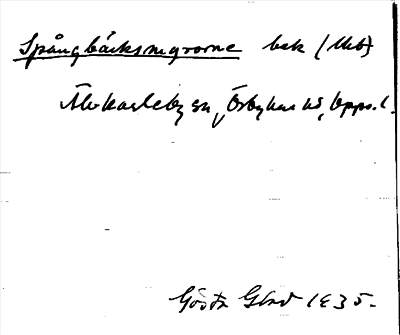 Spångbäcksmyrorne bek (Utb)
Älvkarleby sn, Örbyhus hd, Upps. l.
Gösta Glad 1935.